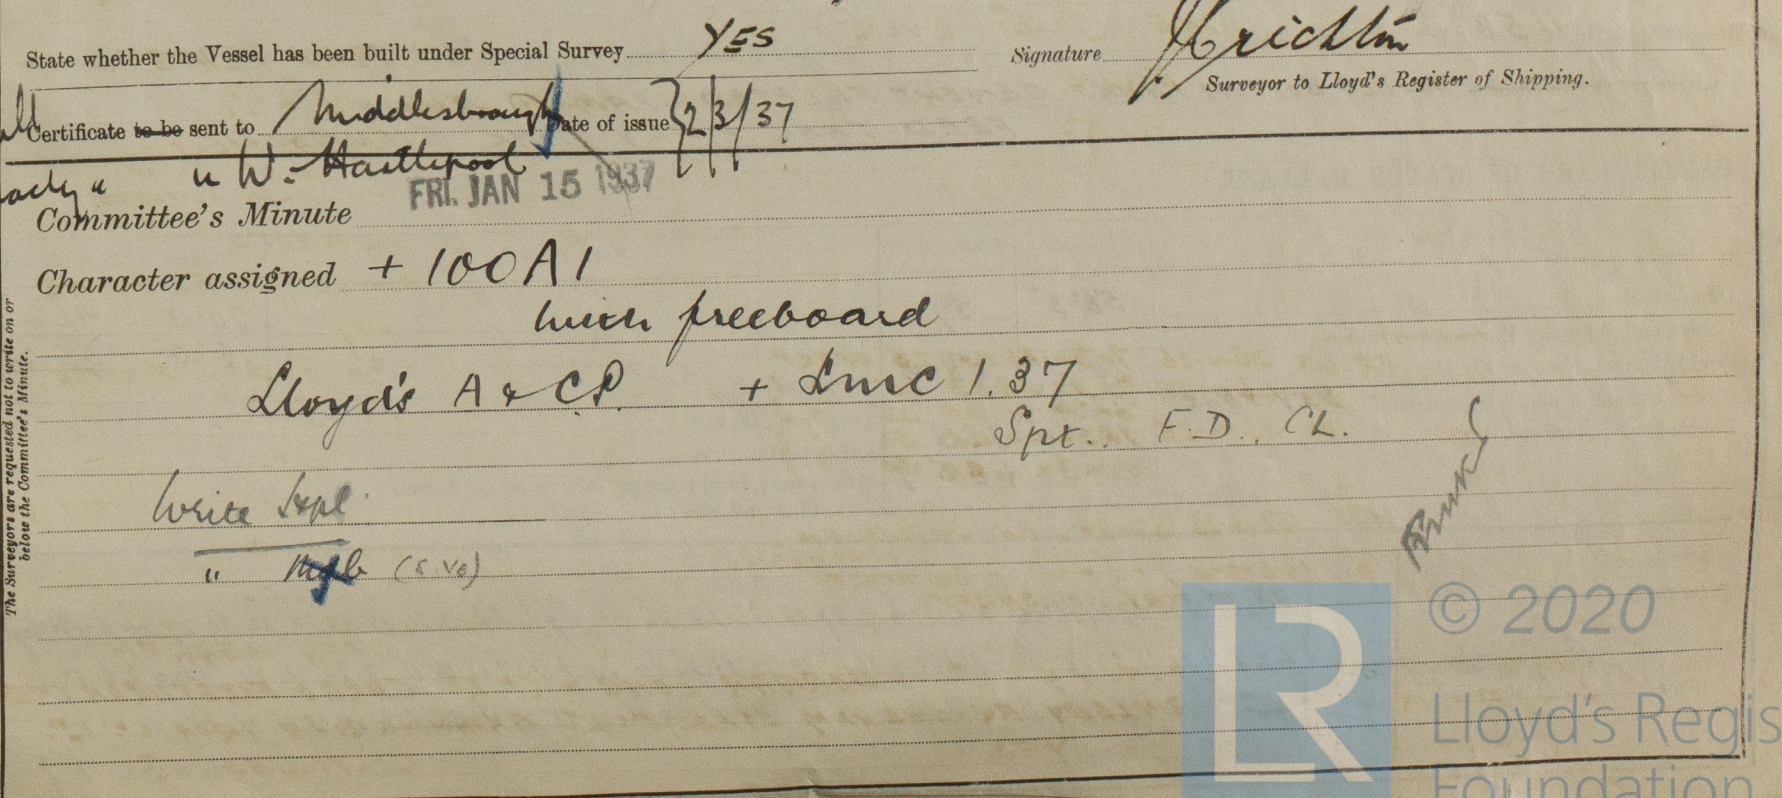 State whether the Vessel has been built under Special Survey YES Signature J Crichton
Surveyor to Lloyd's Register of Shipping.
Certificate to be sent to Middlesbrough Date of issue 2/3/37
" W. Hartlepool
FRI. JAN 15 1937
Committee's Minute
Character assigned + 100 A 1
with freeboard
Lloyd's A & C.P. + LMC 1.37
Spt. F.D. CL.
Write Hpl.
" Mbb
The Surveyors are requested not to write on or
below the Committee's Minute.
LR
© 2020
Lloyd's Regis
Foundation